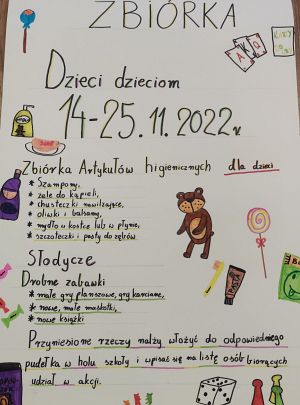 ZBIÓRKA
Dzieci dzieciom
14-25.11.2022r
Zbiórka Artykułów higienicznych dla dzieci
* Szampony,
* żele do kąpieli,
* chusteczki nawilżające,
* oliwki i balsamy,
* mydło w kostce lub w płynie,
* szczoteczki i pasty do zębów
Słodycze
Drobne zabawki
* małe gry planszowe, gry karciane,
* nowe, małe maskotki,
* nowe książki
Przyniesione rzeczy należy włożyć do odpowiedniego
pudełka w holu szkoły i wpisać się na listę osób biorących
udział w akcji.